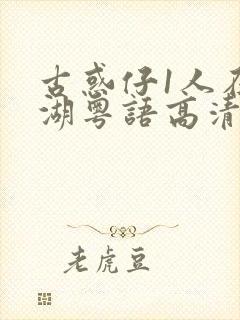 古惑仔1人在
湖粤語高清
老虎豆